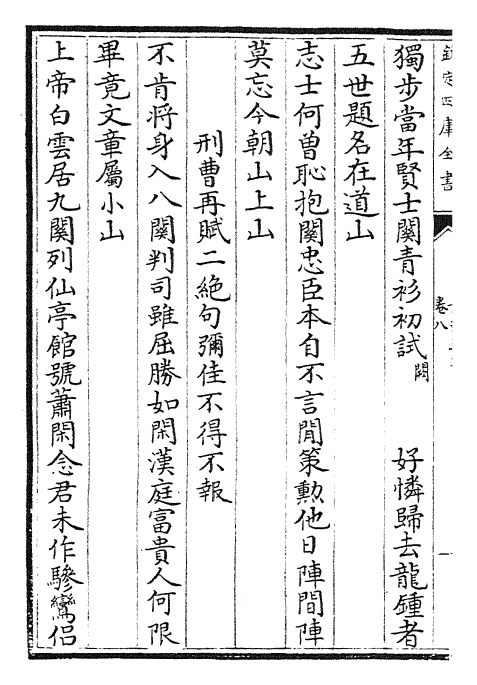 欽定四庫全書
卷八
獨步當年賢士關青衫初試闕　　好憐歸去龍鍾者
五世題名在道山
志士何曾恥抱關忠臣本自不言閒策勲他日陣間陣
莫忘今朝山上山
刑曹再賦二絶句彌佳不得不報
不肯将身入八關判司雖屈勝如閑漢庭富貴人何限
畢竟文章屬小山
上帝白雲居九關列仙亭館號蕭閑念君未作驂鸞侣